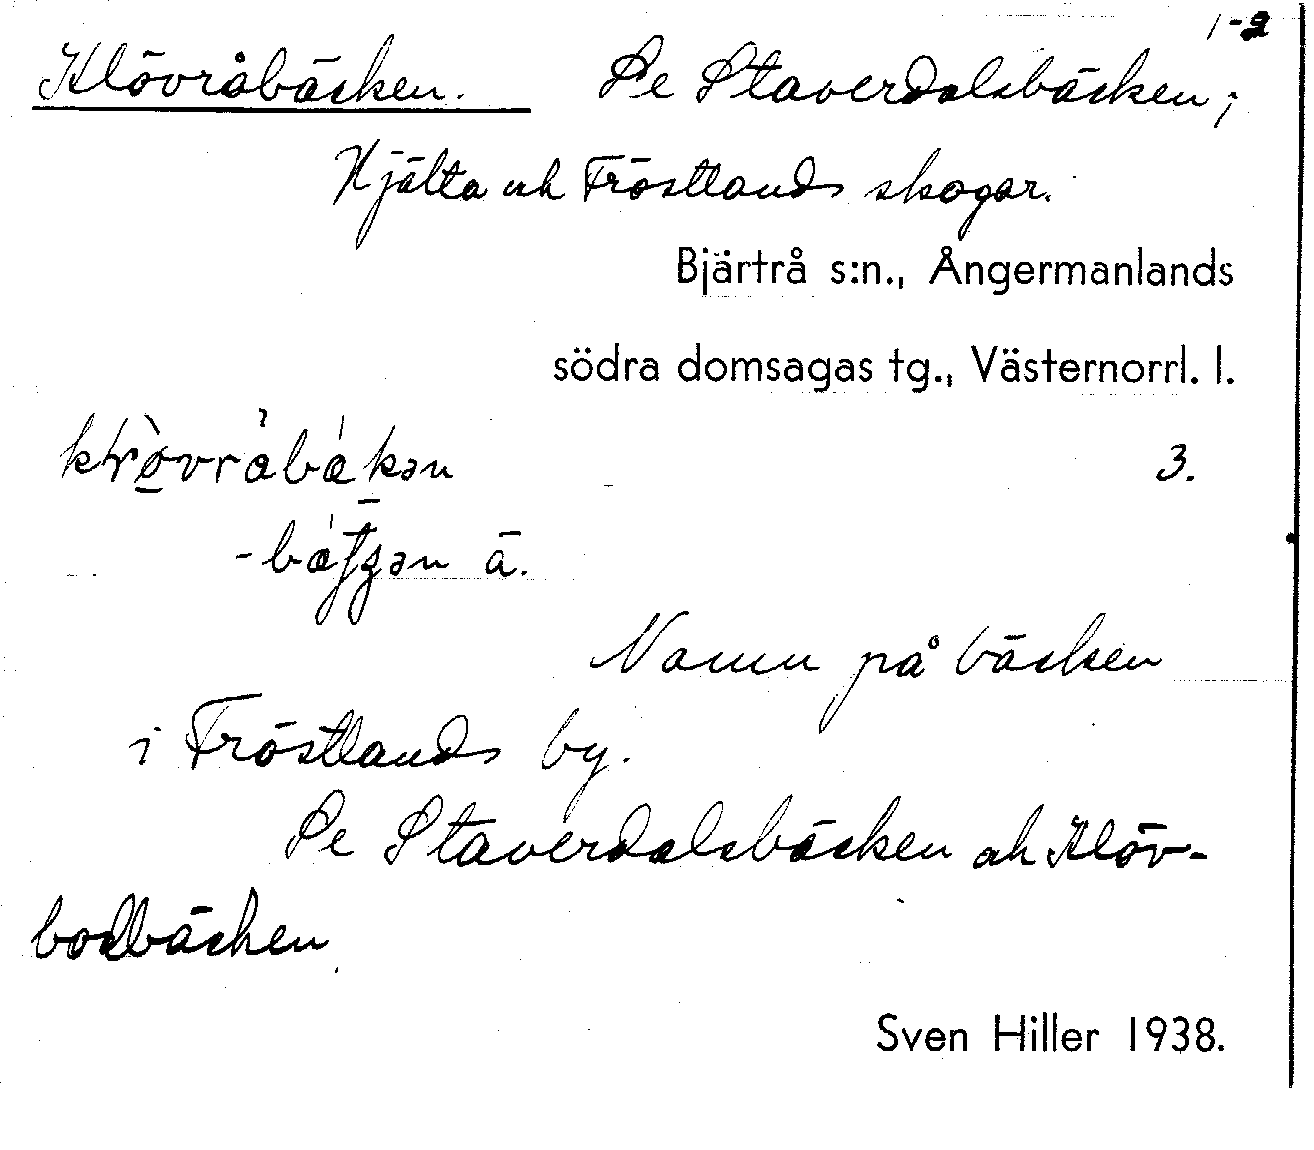 1-2
Klövråbäcken. Se Staverdalsbäcken;
Hjälta och Fröstlands skogar.
Bjärtrå s:n., Ångermanlands
södra domsagas tg., Västernorrl. l.
3.
ä.
Namn på bäcken
i Fröstlands by.
Se Staverdalsbäcken och Klöv-
bodbäcken
Sven Hiller 1938.